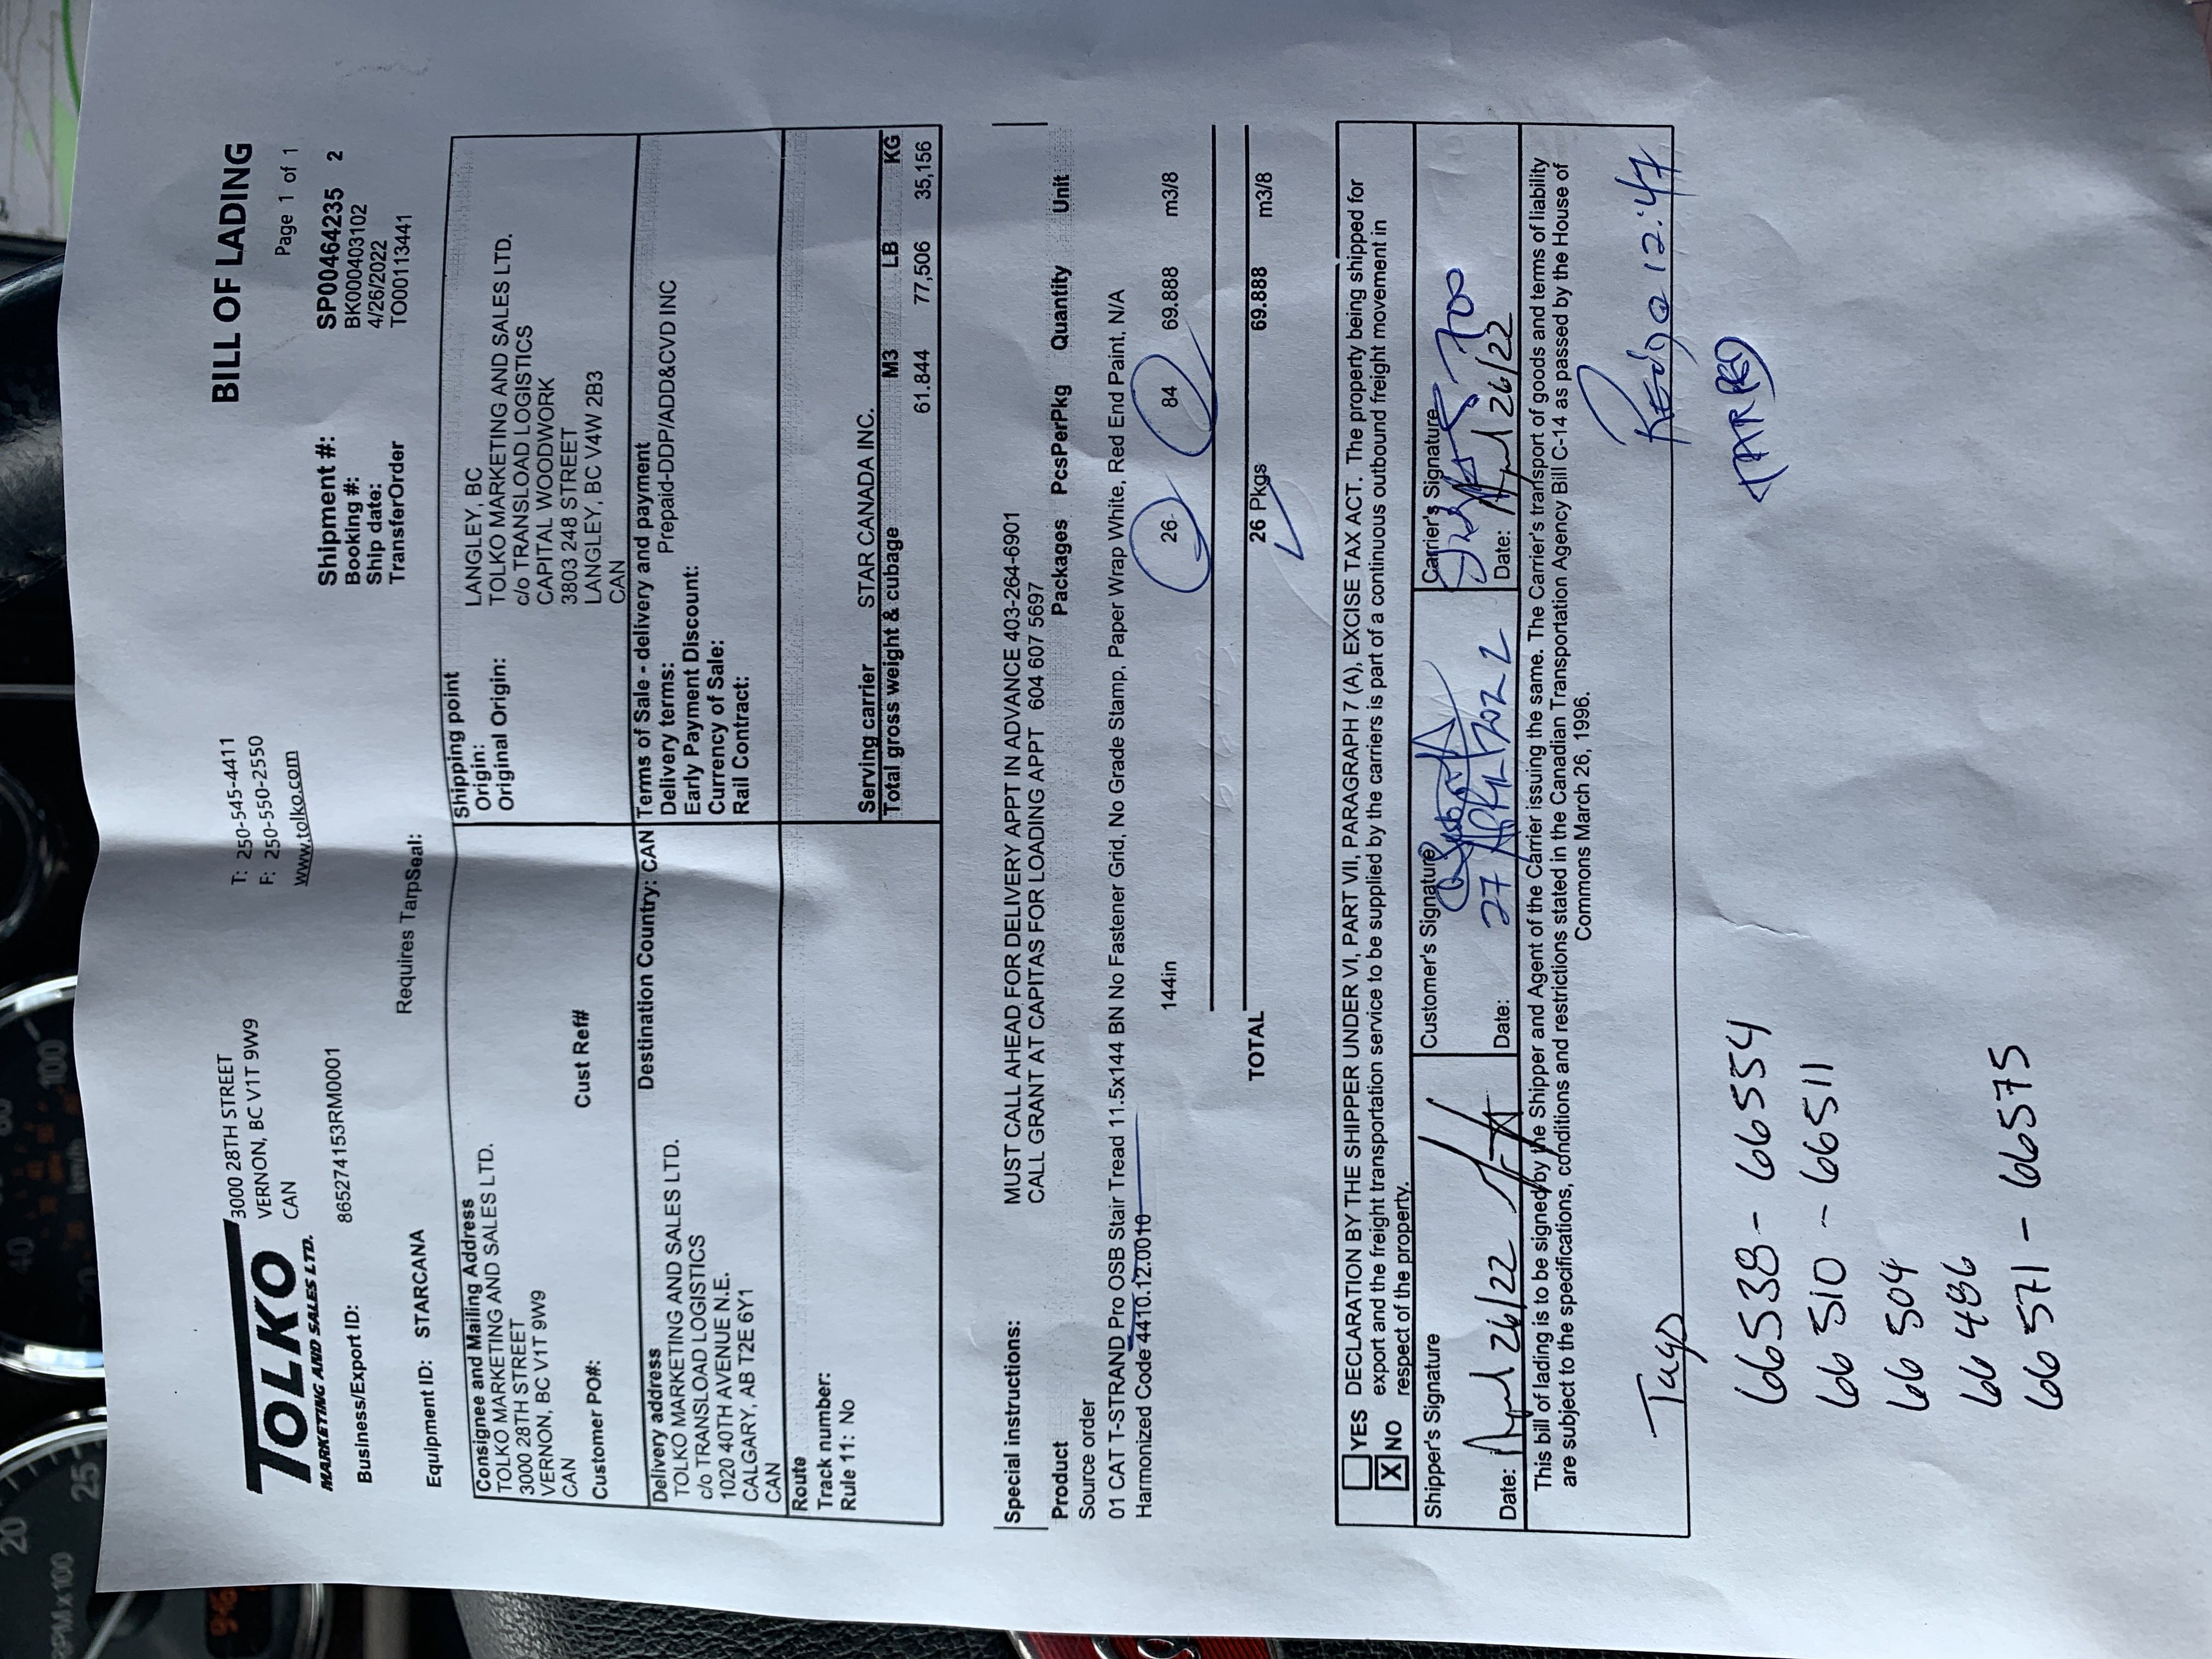 20
25
RPM x 100
40
100
km/h
BILL OF LADING
Page 1 of 1
TOLKO
MARKETING AND SALES LTD.
3000 28TH STREET
VERNON, BC V1T 9W9
CAN
T: 250-545-4411
F: 250-550-2550
www.tolko.com
Business/Export ID: 865274153RM0001
Shipment #: SP00464235 2
Booking #: BK000403102
Ship date: 4/26/2022
TransferOrder TO00113441
Equipment ID: STARCANA
Requires TarpSeal:
Consignee and Mailing Address
TOLKO MARKETING AND SALES LTD.
3000 28TH STREET
VERNON, BC V1T 9W9
CAN
Customer PO#: Cust Ref#
Shipping point
Origin: LANGLEY, BC
Original Origin: TOLKO MARKETING AND SALES LTD.
c/o TRANSLOAD LOGISTICS
CAPITAL WOODWORK
3803 248 STREET
LANGLEY, BC V4W 2B3
CAN
Delivery address Destination Country: CAN
TOLKO MARKETING AND SALES LTD.
c/o TRANSLOAD LOGISTICS
1020 40TH AVENUE N.E.
CALGARY, AB T2E 6Y1
CAN
Terms of Sale - delivery and payment
Delivery terms: Prepaid-DDP/ADD&CVD INC
Early Payment Discount:
Currency of Sale:
Rail Contract:
Route
Track number:
Rule 11: No
Serving carrier STAR CANADA INC.
Total gross weight & cubage M3 LB KG
61.844 77,506 35,156
Special instructions: MUST CALL AHEAD FOR DELIVERY APPT IN ADVANCE 403-264-6901
CALL GRANT AT CAPITAS FOR LOADING APPT 604 607 5697
Product Packages PcsPerPkg Quantity Unit
Source order
01 CAT T-STRAND Pro OSB Stair Tread 11.5x144 BN No Fastener Grid, No Grade Stamp, Paper Wrap White, Red End Paint, N/A
Harmonized Code 4410.12.0010
144in 26 84 69.888 m3/8
TOTAL 26 Pkgs 69.888 m3/8
YES DECLARATION BY THE SHIPPER UNDER VI, PART VII, PARAGRAPH 7 (A), EXCISE TAX ACT. The property being shipped for
X NO export and the freight transportation service to be supplied by the carriers is part of a continuous outbound freight movement in
respect of the property.
Shipper's Signature
Date: April 26/22
Customer's Signature
Date: 27 APRIL 2022
Carrier's Signature
700
Date: April 26/22
This bill of lading is to be signed by the Shipper and Agent of the Carrier issuing the same. The Carrier's transport of goods and terms of liability
are subject to the specifications, conditions and restrictions stated in the Canadian Transportation Agency Bill C-14 as passed by the House of
Commons March 26, 1996.
Tags
@ 12:47
TARPED
66538 - 66554
66510 - 66511
66504
66486
66571 - 66575